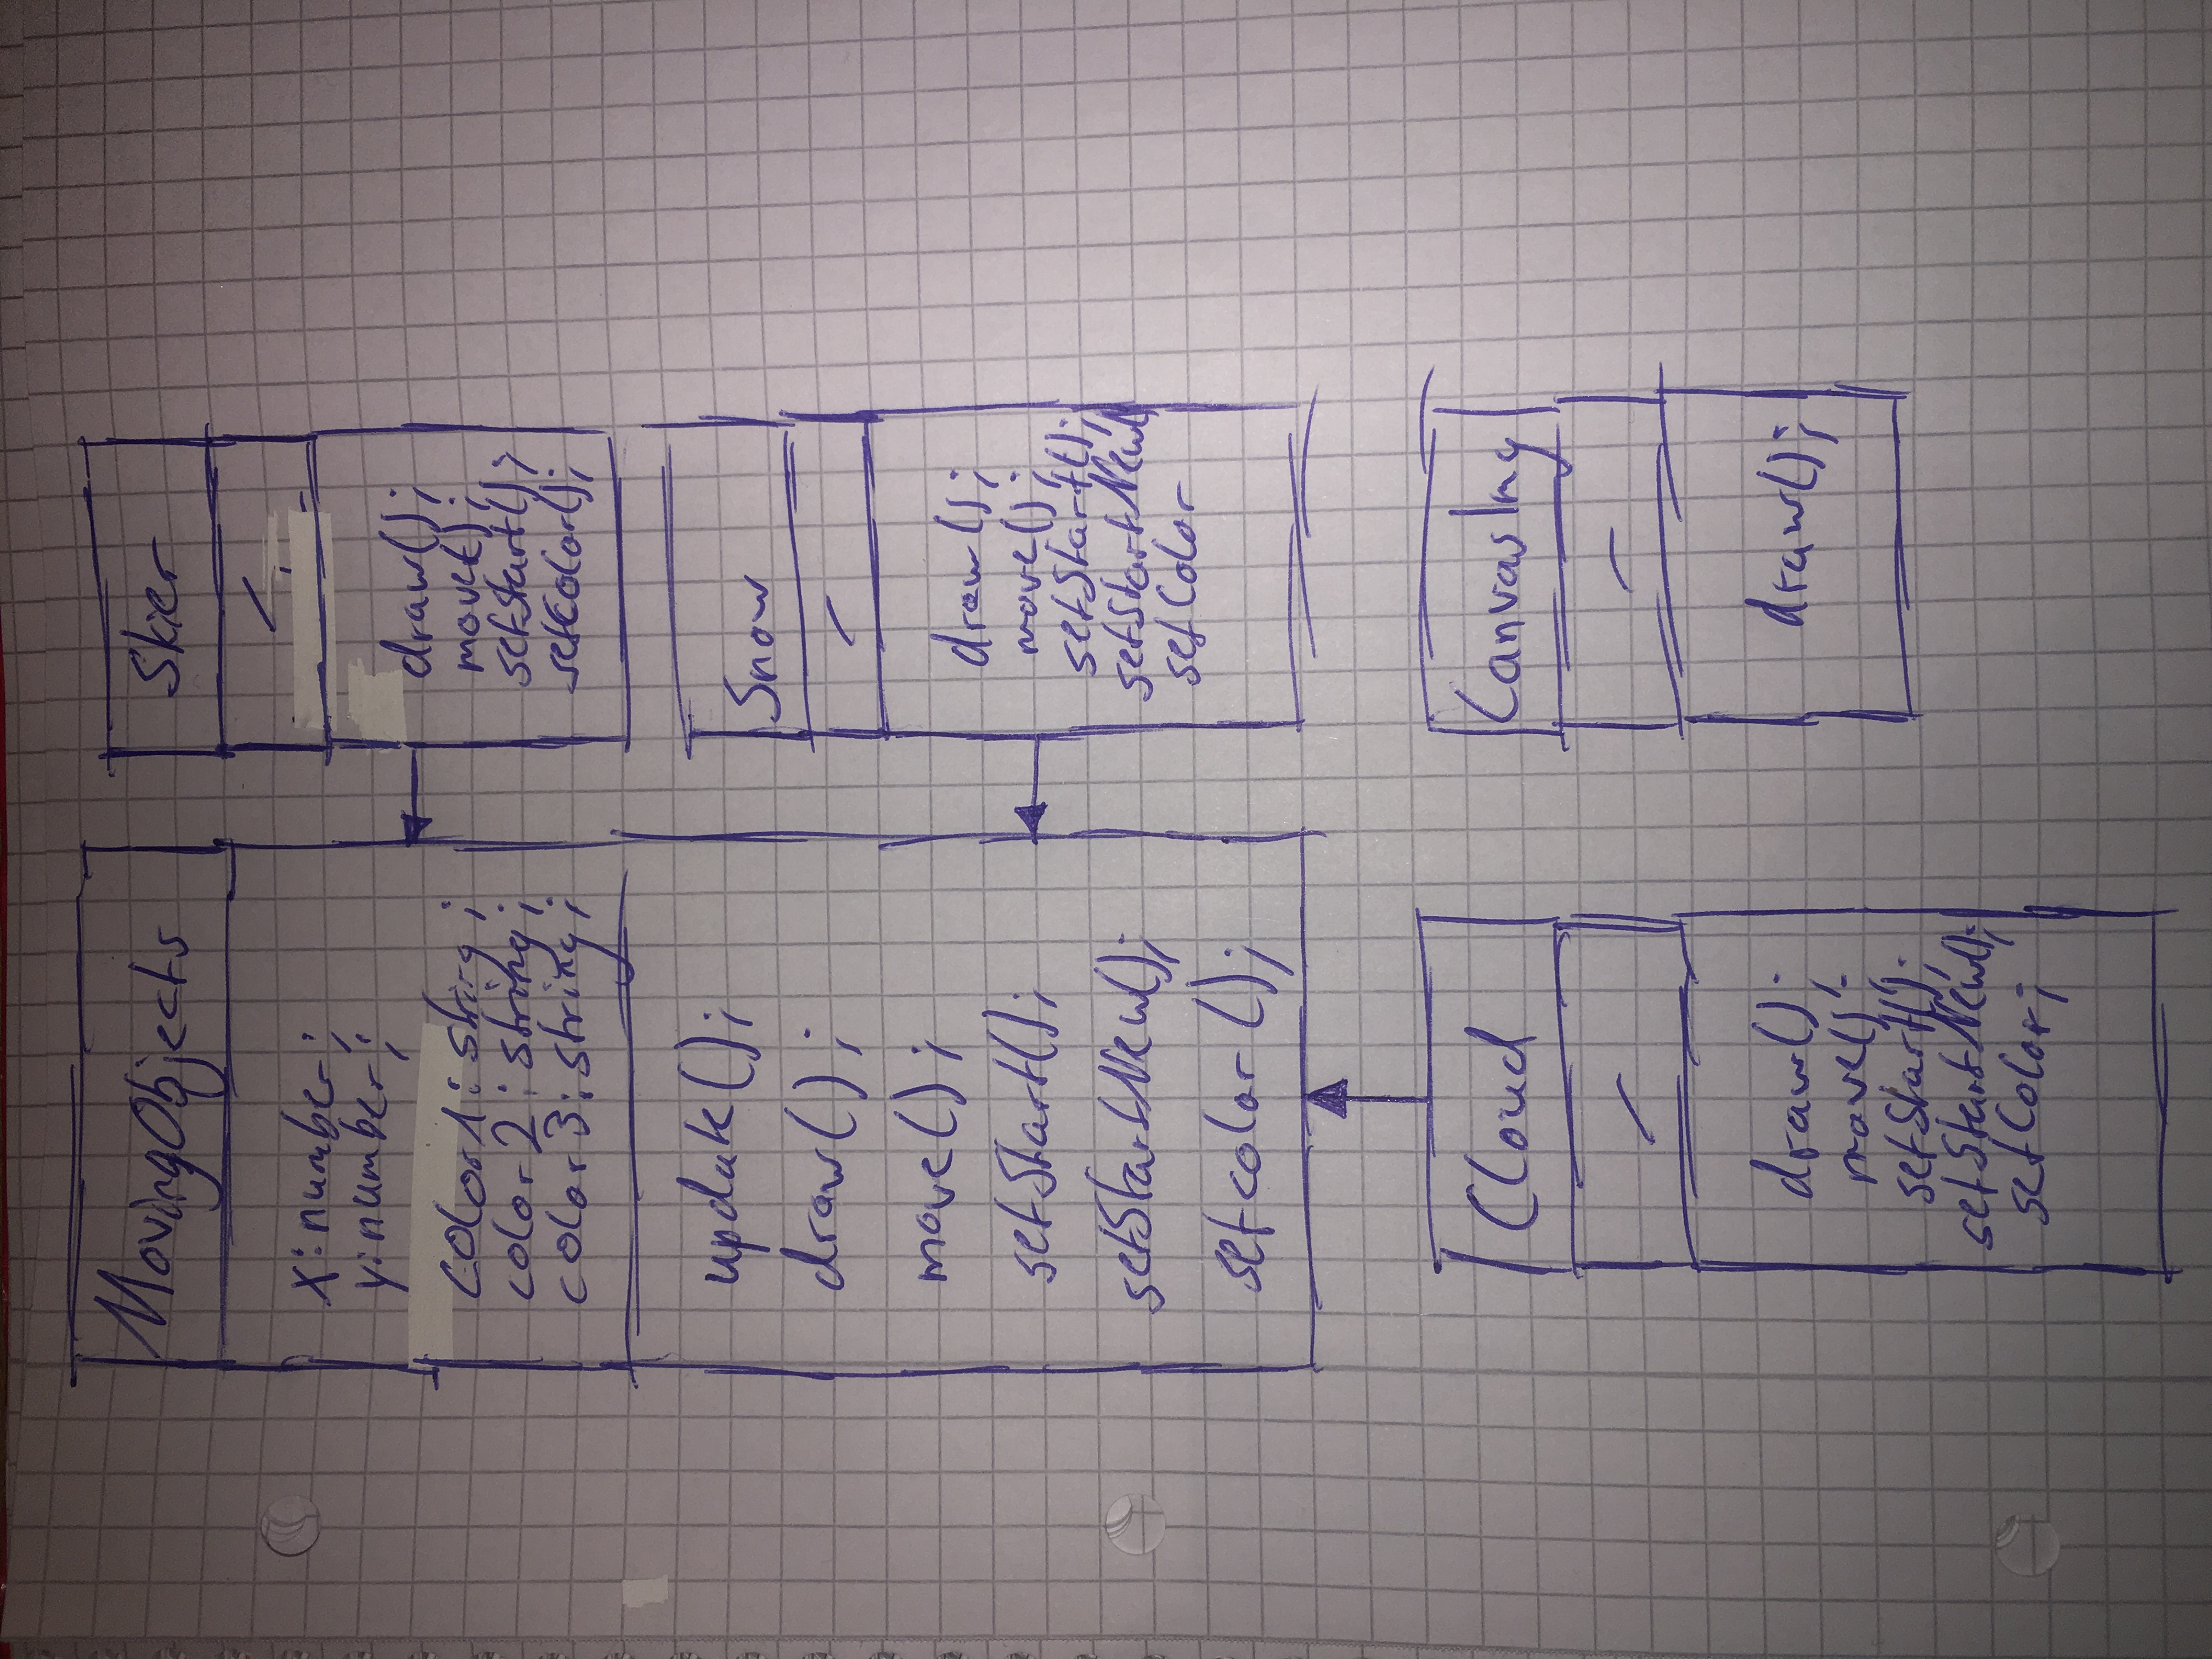 MovingObjects
x: number;
y: number;
color1: string;
color2: string;
color3: string;
update();
draw();
move();
setStart();
setStartNew();
setcolor();
Skier
draw();
move();
setStart();
setColor();
Snow
draw();
move();
setStart();
setStartNew()
setColor
Cloud
draw();
move();
setStart();
setStartNew();
setColor;
CanvasImg
draw();